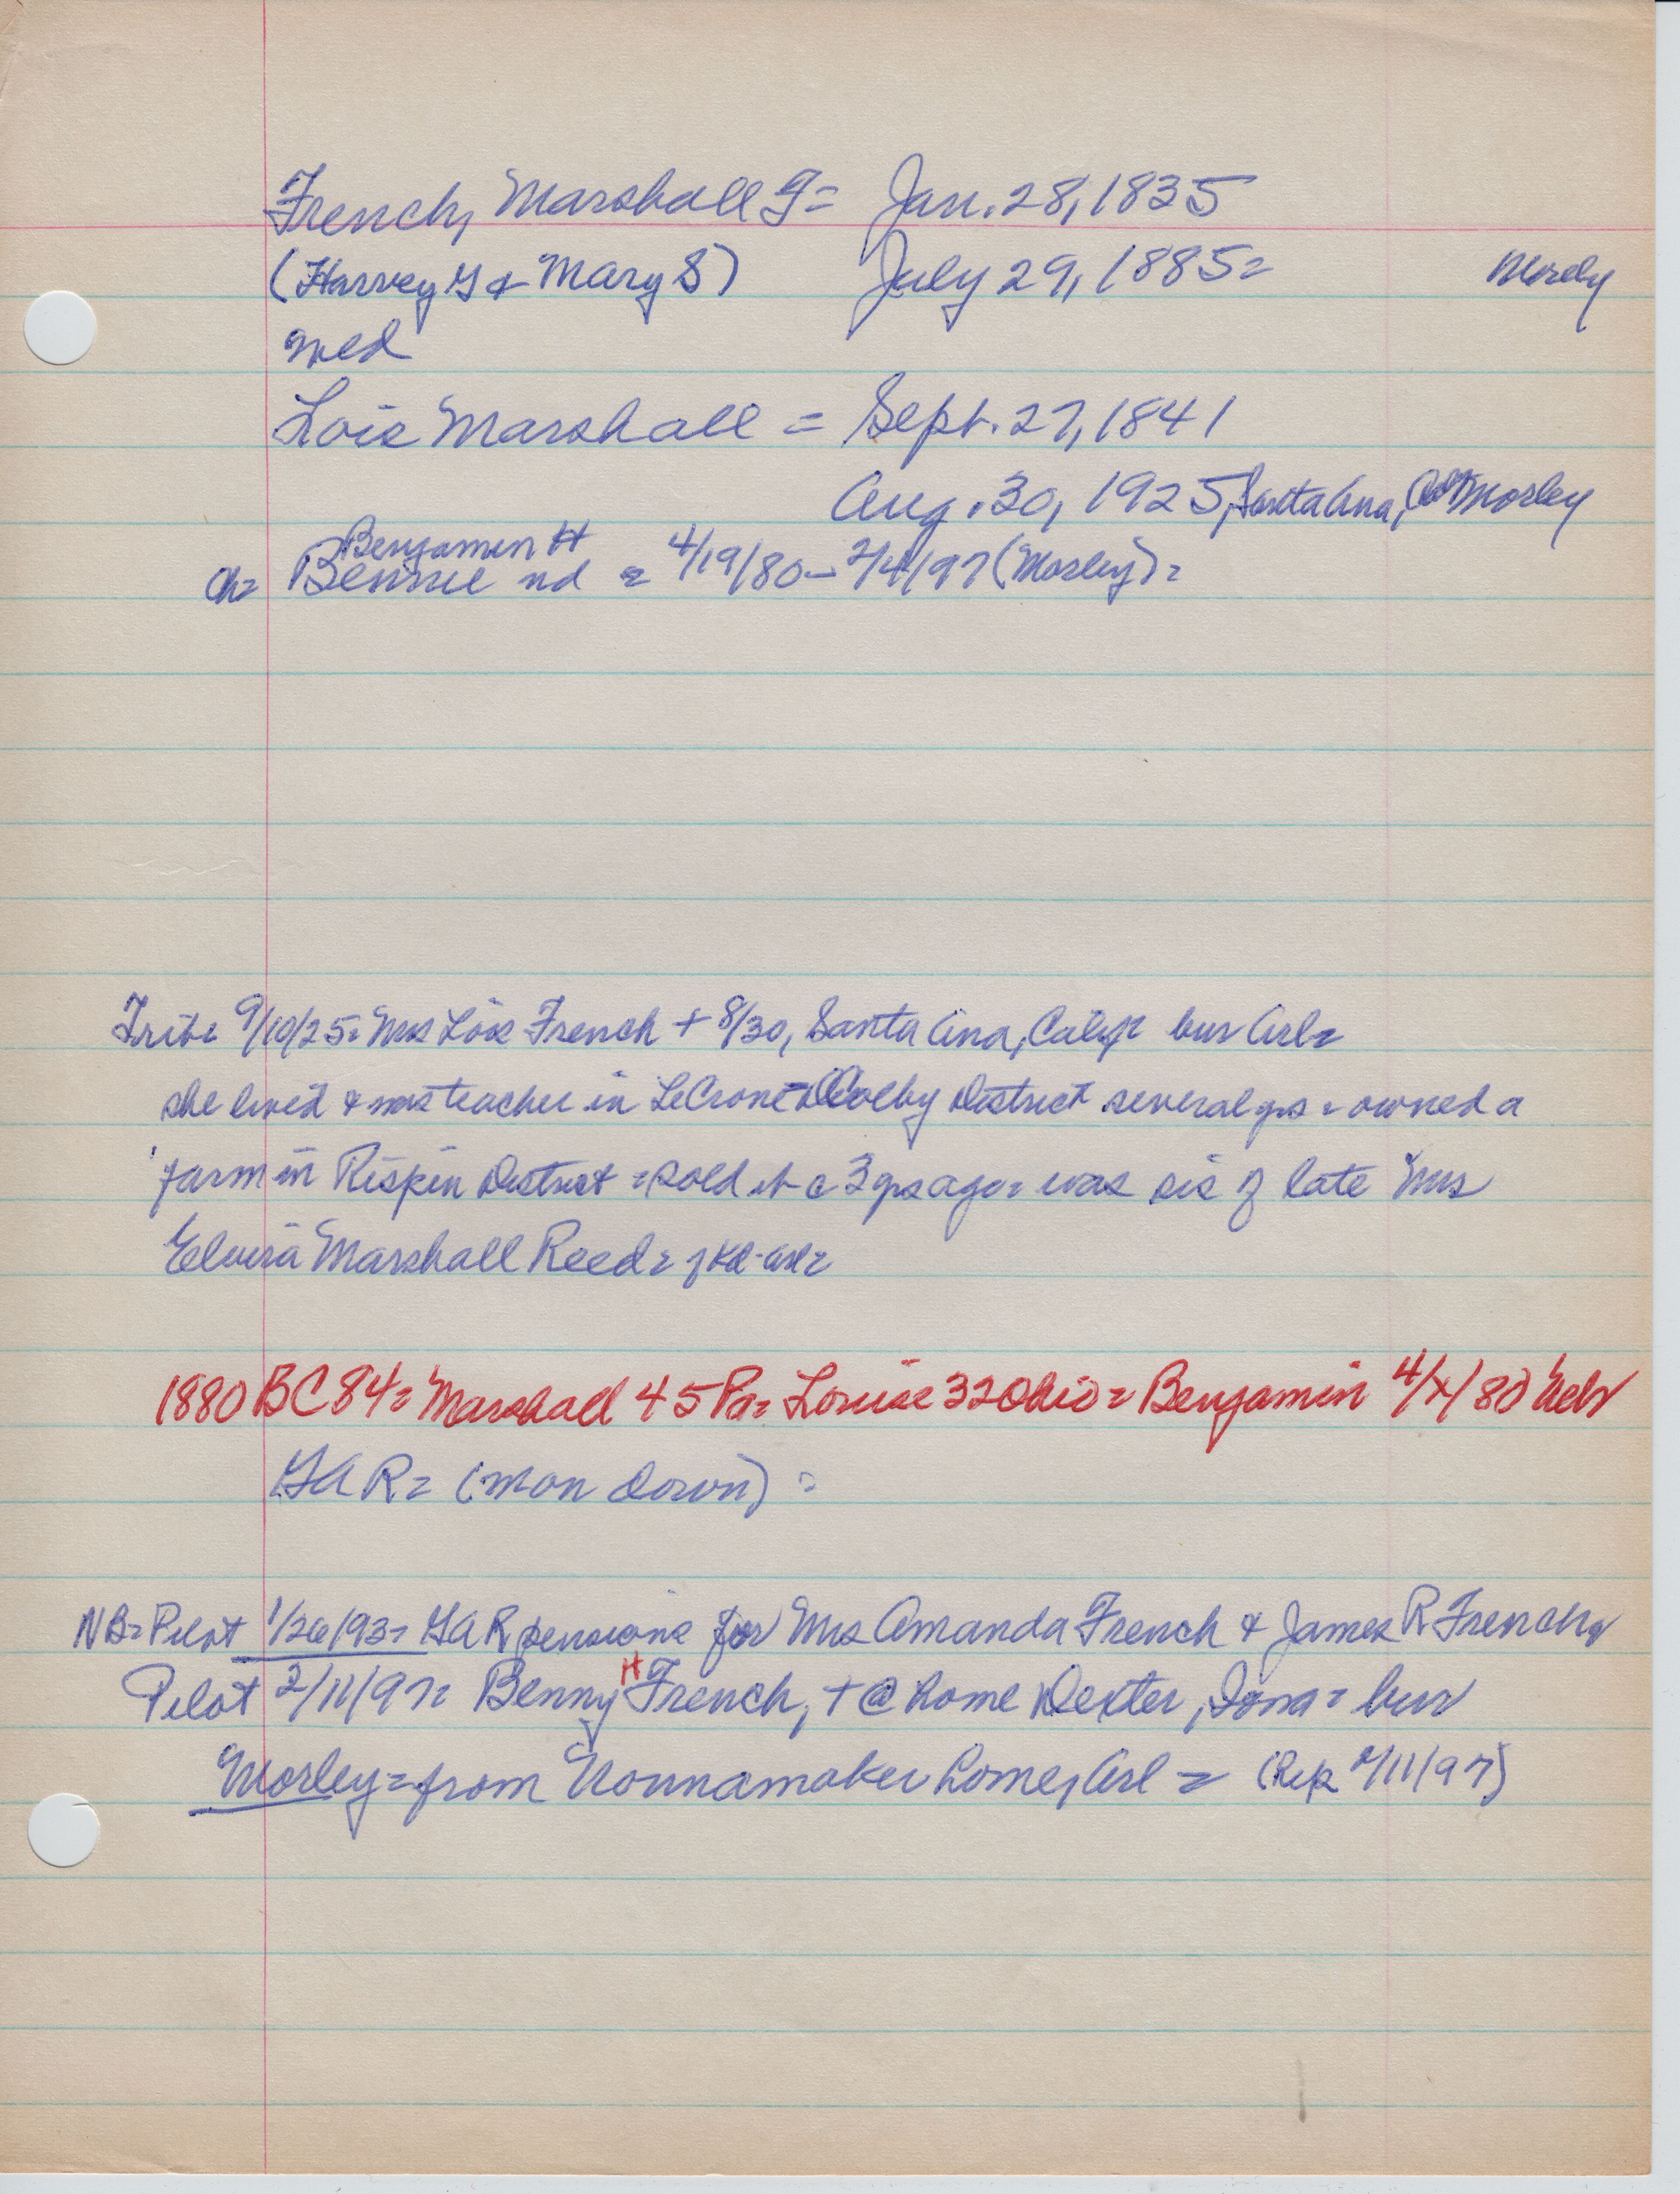 French, Marshall G= Jan. 28, 1835
(Harvey G & Mary S) July 29, 1885= Morely
med
Lois Marshall = Sept. 27, 1841
Aug. 30, 1925, Santa Ana, Morley
Benjamin H
Ch= Bennie nd = 4/19/80 - 2/4/97 (Morley) =
Tribe 9/10/25= Mrs Lois French + 8/30, Santa Ana, Calif= bur Arl=
she lived & was teacher in LeCrone District several yrs = owned a
farm in Rispin District = sold it c 3 yrs ago = was sis of late Mrs
Elvira Marshall Reed =
1880 BC 84= Marshall 45 Pa= Louise 32 Ohio= Benjamin 4/x/80 Nebr
GAR= (mon down) =
NB= Pilot 1/26/93= GAR pensions for Mrs Amanda French & James R French
Pilot 2/11/97= Benny H French, + @ home Dexter, Iowa= bur
Morley= from Nonnamaker home, Arl = (Rep 2/11/97)